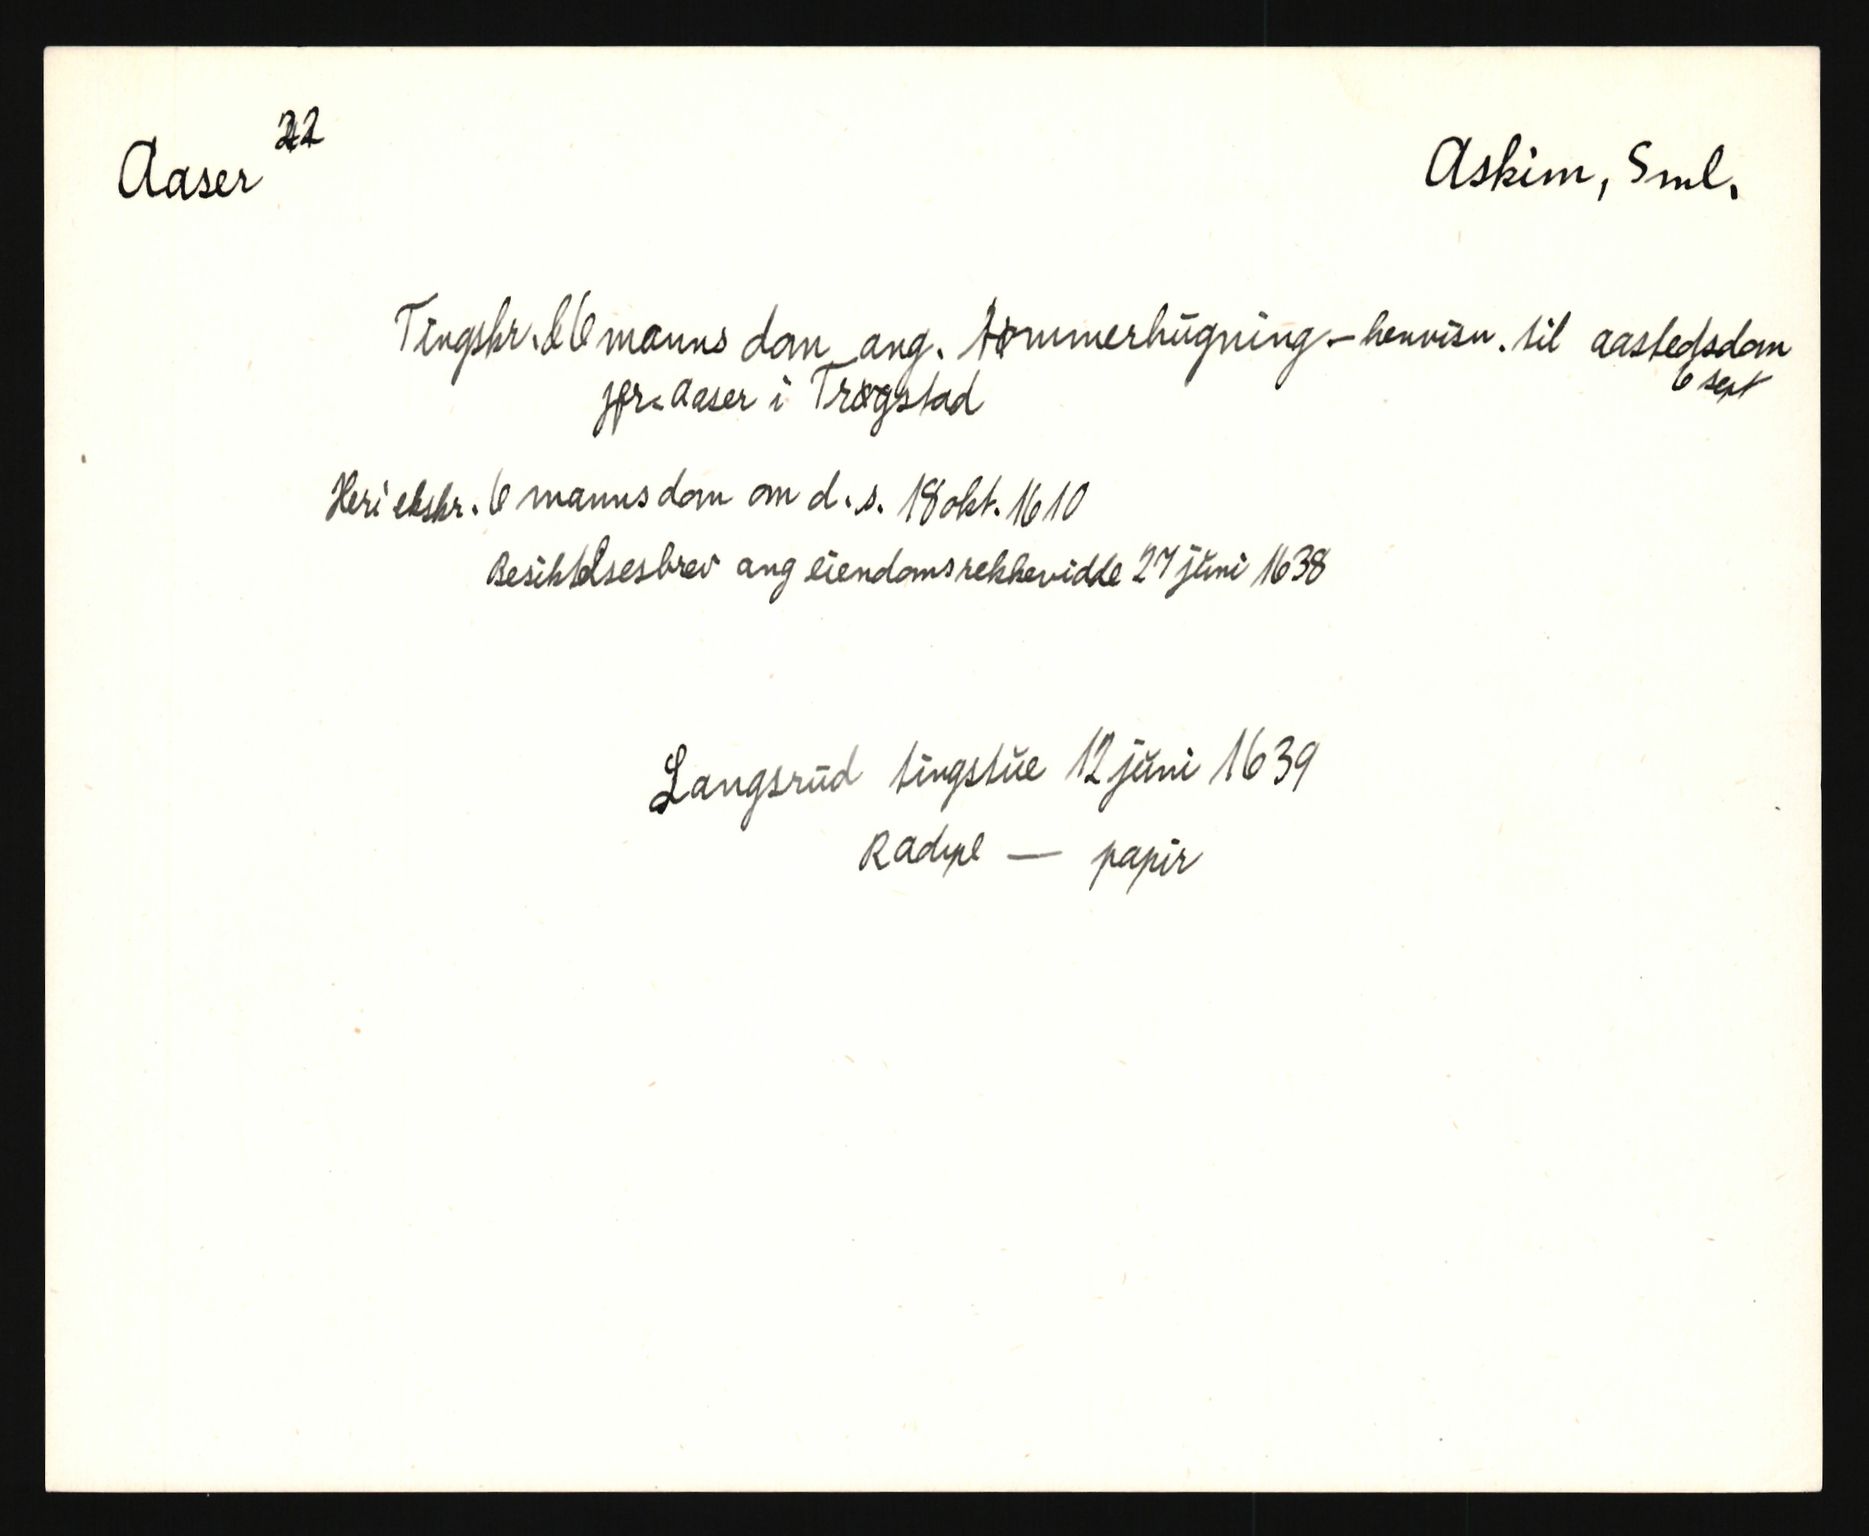 Aaser 22
Askim, Sml.
Tingskr. & 6 manns dom ang. tømmerhugning - henvisn. til aastedsdom
6 sept
jfr. Aaser i Trøgstad
Heri ekskr. 6 manns dom om d. s. 18 okt. 1610
Besiktelsesbrev ang eiendomsrekkevidde 27 juni 1638
Langsrud tingstue 12 juni 1639
Radpl — papir